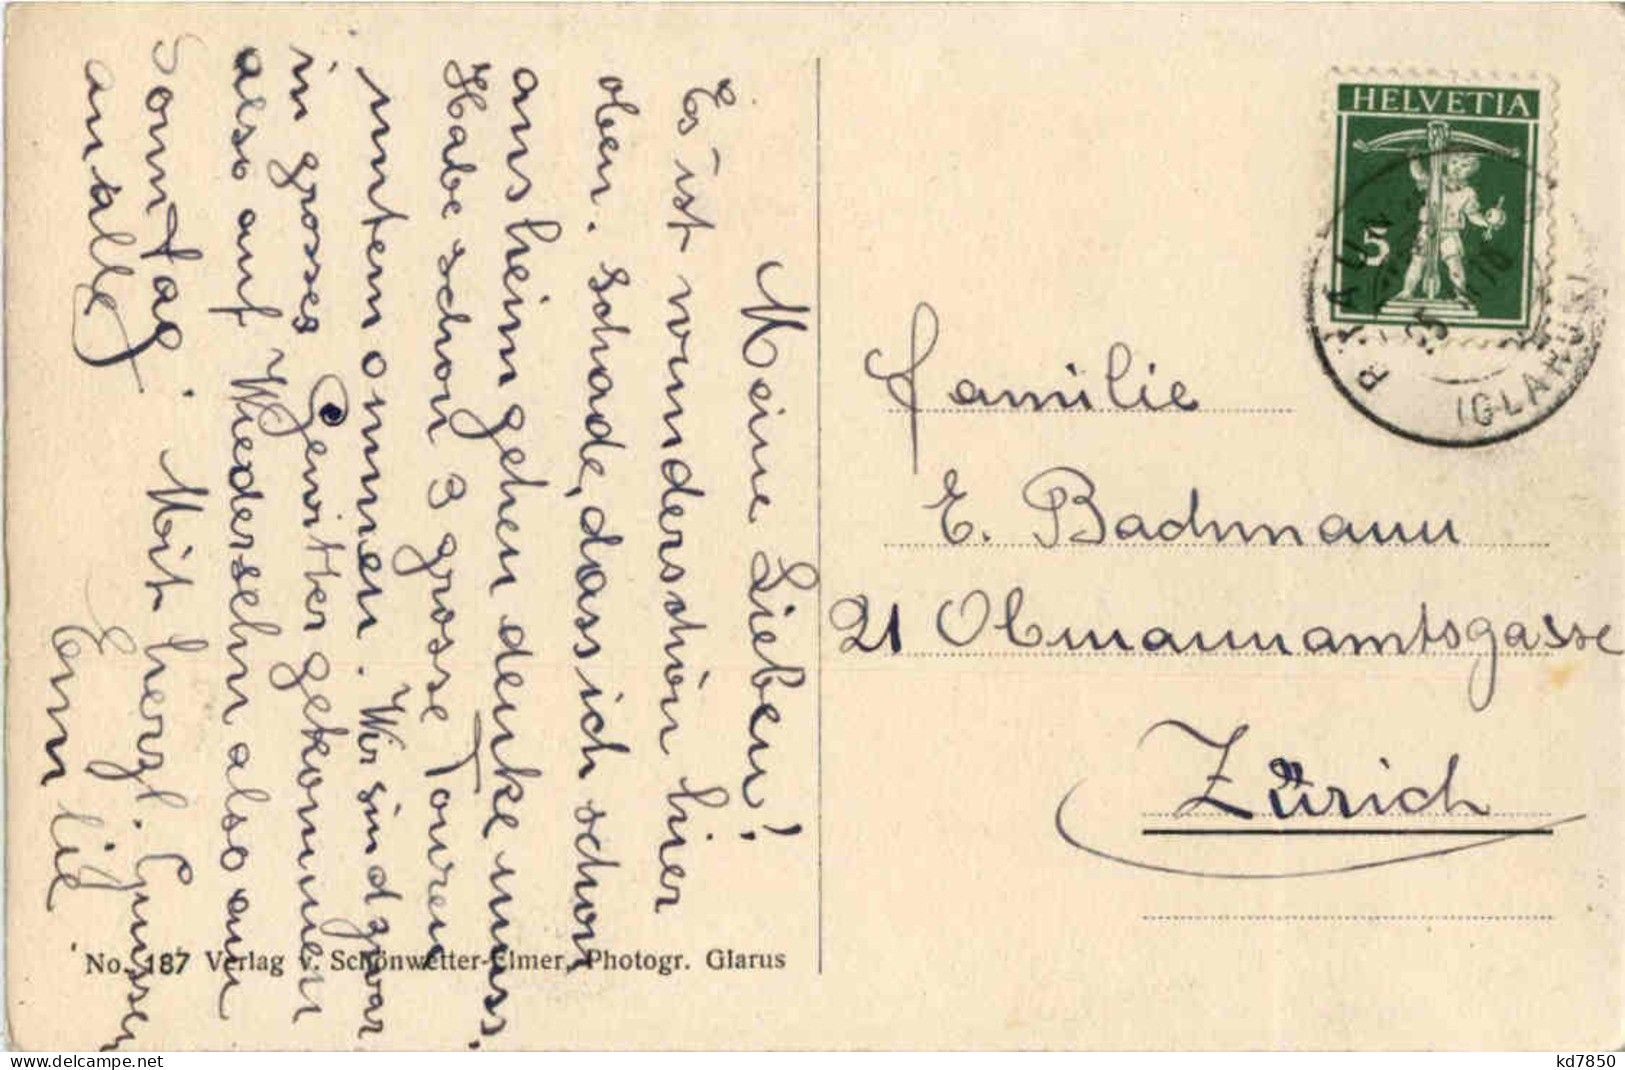 Meine Lieben!
Es ist wunderschön hier
oben. Schade, dass ich schon
ans heimgehen denke muss.
Habe schon 3 grosse Touren
unternommen. Wir sind zwar
in grosses Gewitter gekommen
also auf Wiedersehn also am
Sonntag. Mit herzl. Grüssen
an alle
Emilie
HELVETIA
5
BRAUNWALD
(GLARUS)
Familie
E. Bachmann
21 Obmannamtsgasse
Zürich
No. 187 Verlag v. Schönwetter-Elmer, Photogr. Glarus
delcampe.net
kd7850